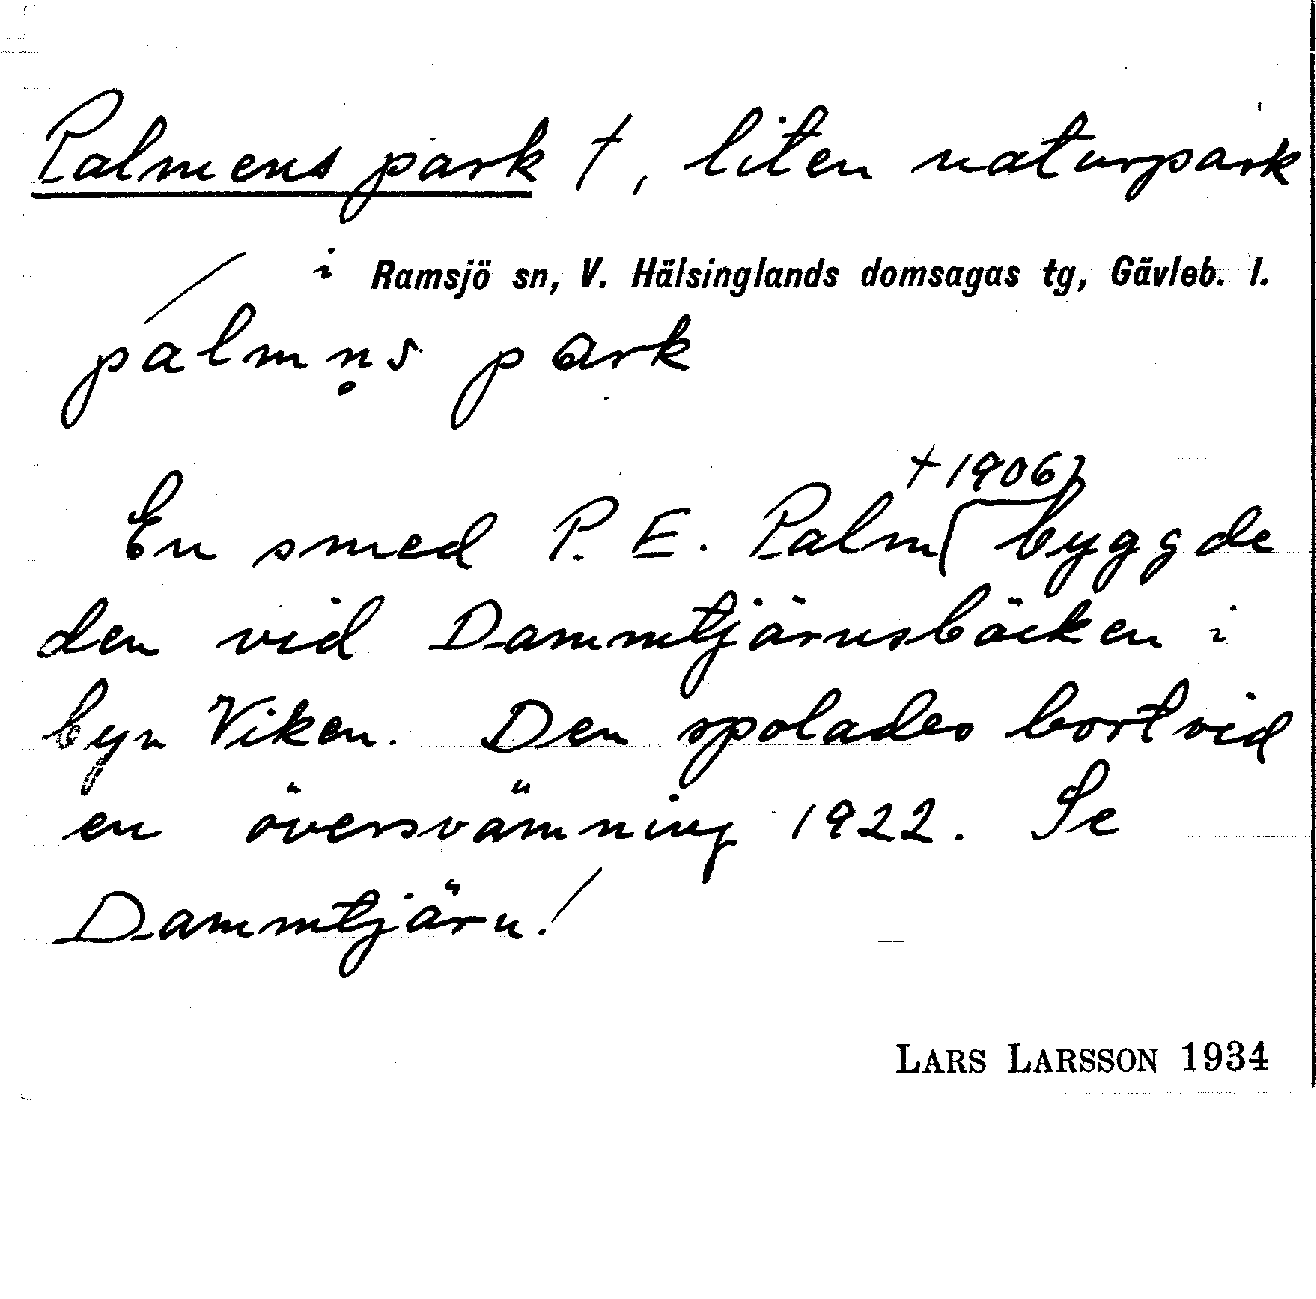 Palmens park †, liten naturpark
i Ramsjö sn, V. Hälsinglands domsagas tg, Gävleb. l.
pálmn̥s park
En smed P. E. Palm †1906 byggde
den vid Dammtjärnsbäcken i
byn Viken. Den spolades bort vid
en översvämning 1922. Se
Dammtjärn!
LARS LARSSON 1934